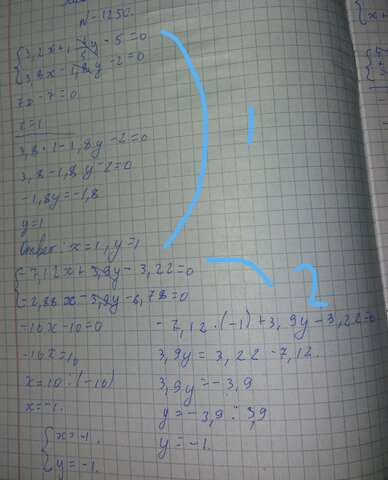 N-1250.
3,2x+1,8y-5=0
3,8x-1,8y-2=0
7x-7=0
x=1
3,8·1-1,8y-2=0
3,8-1,8y-2=0
-1,8y=-1,8
y=1
Ответ: x=1, y=1
1
-7,12x+3,9y-3,22=0
-2,88x-3,9y-6,78=0
2
-10x-10=0
-10x=10
x=10·(-10)
x=-1.
{x=-1.
{y=-1.
-7,12·(-1)+3,9y-3,22=0
3,9y=3,22-7,12.
3,9y=-3,9
y=-3,9:3,9
y=-1.